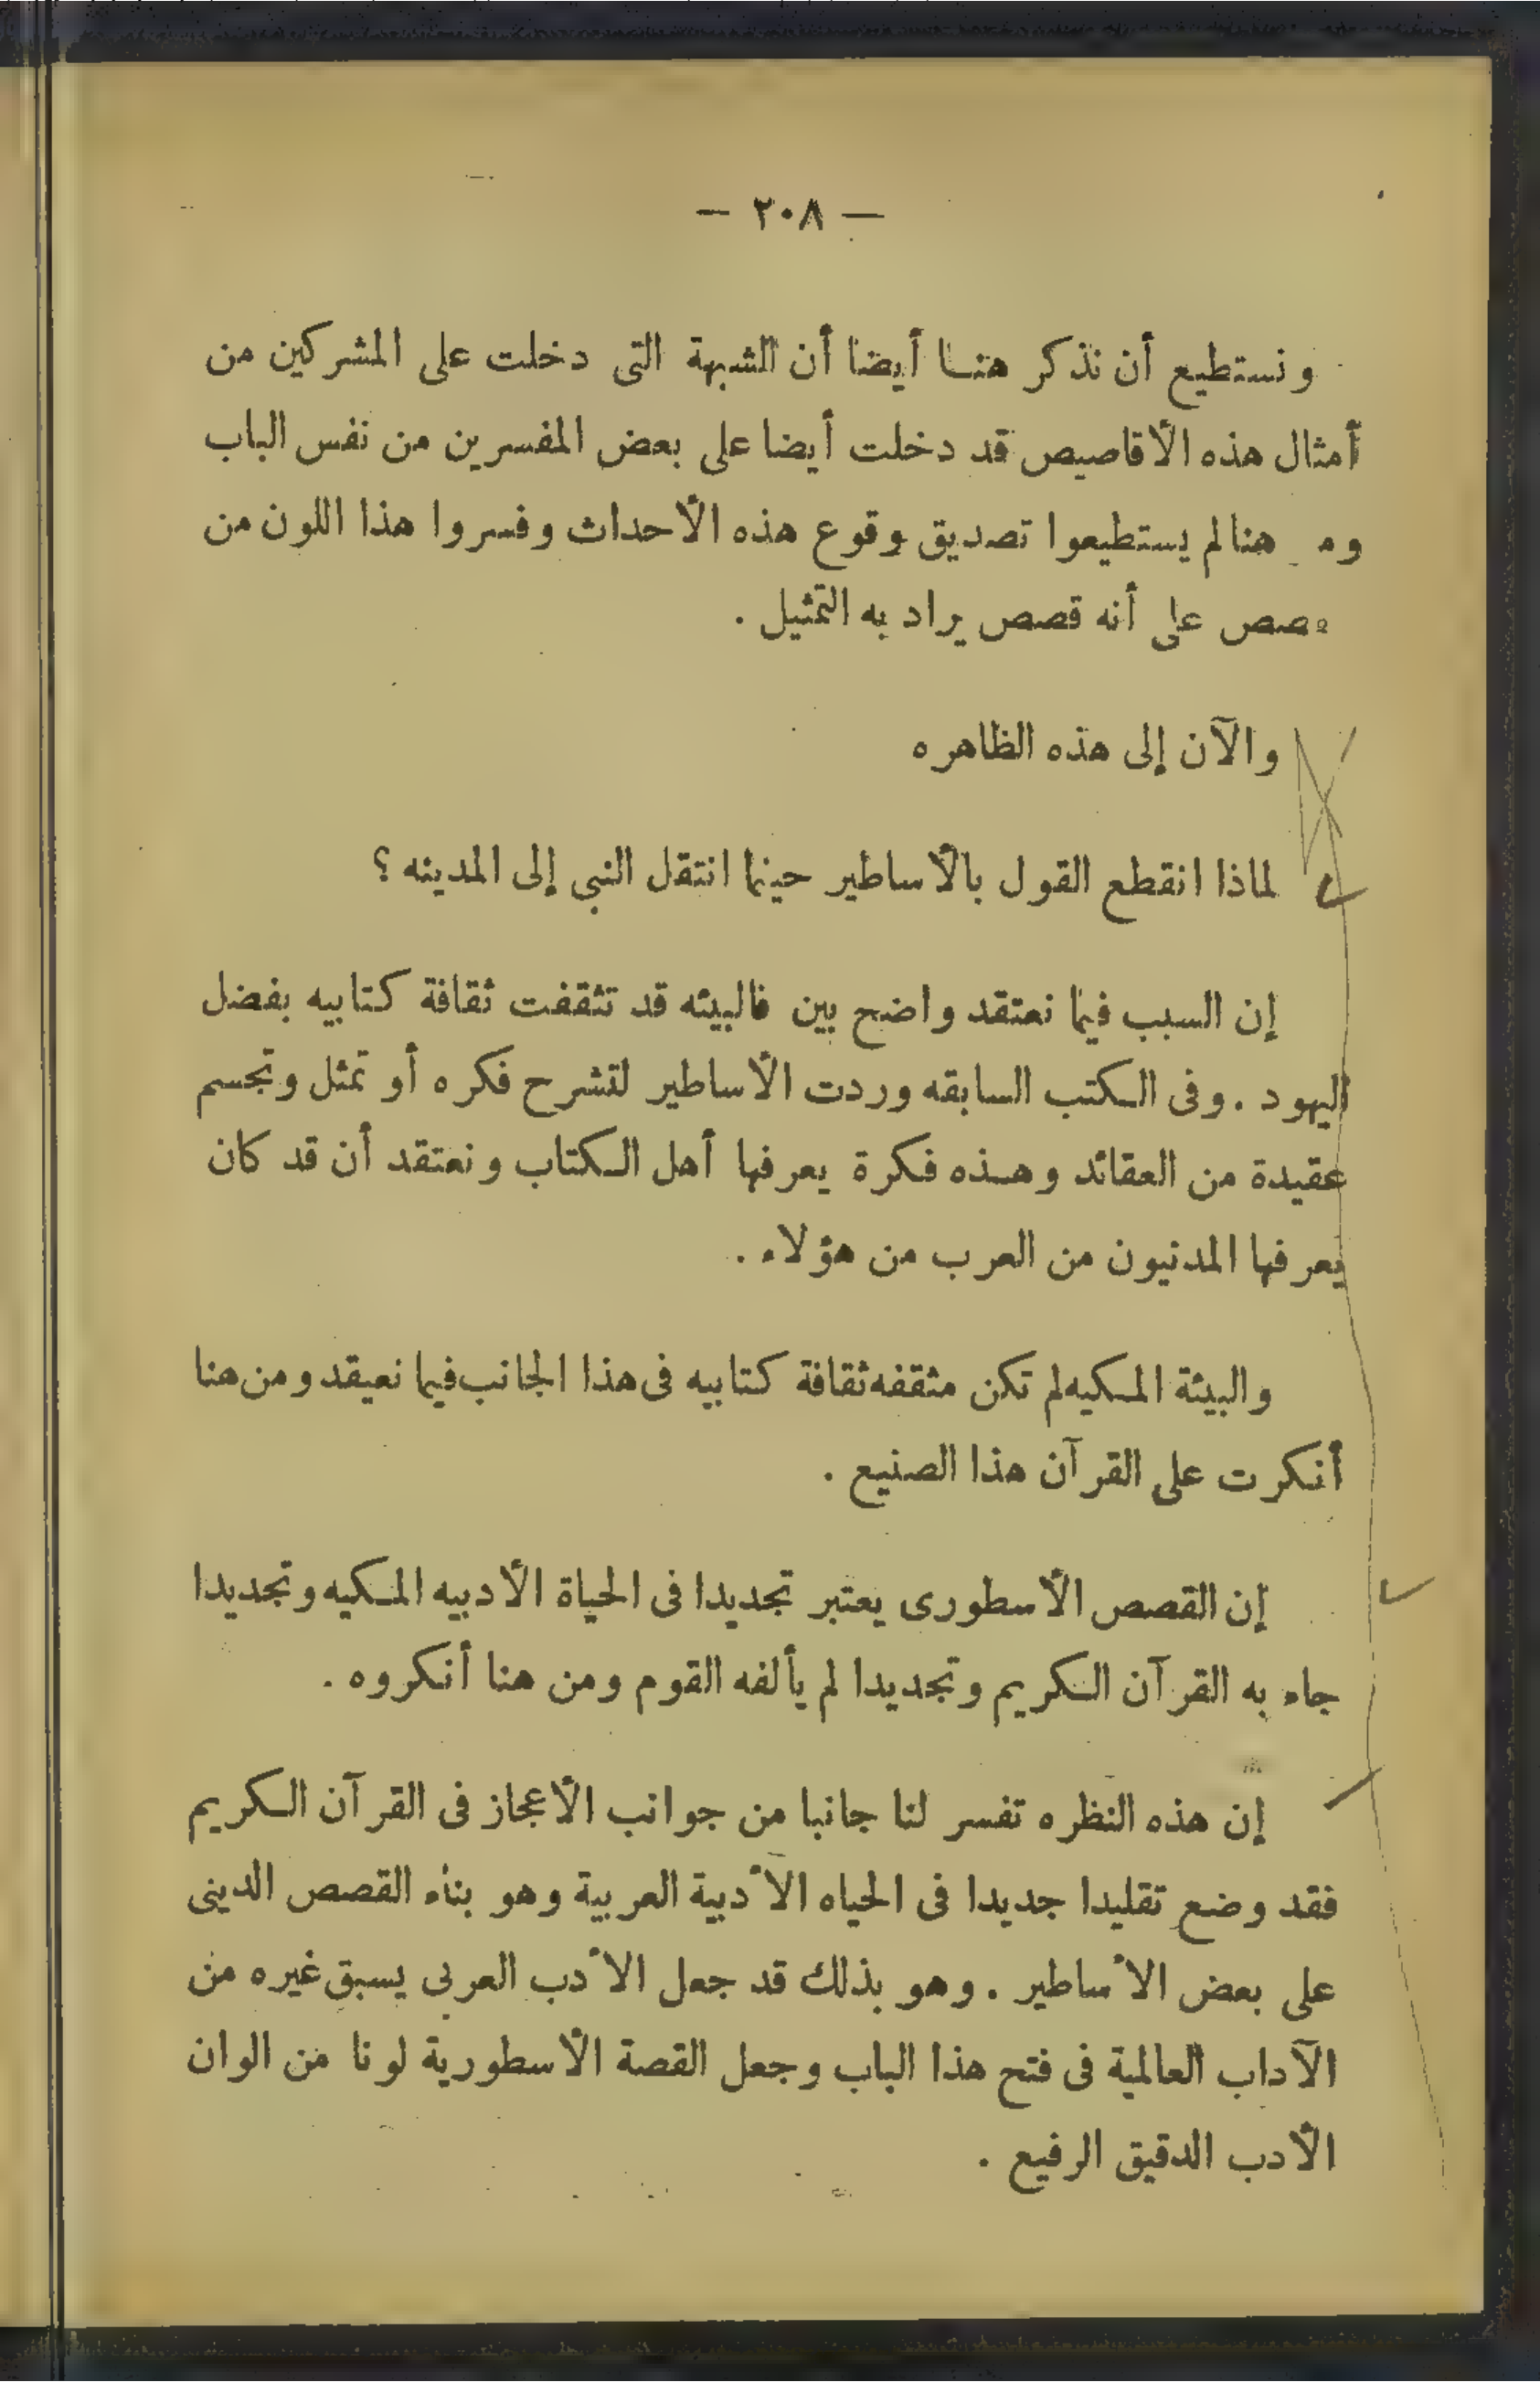 — ٢٠٨ —
ونستطيع أن نذكر هنا أيضا أن الشبهة التى دخلت على المشركين من
أمثال هذه الأقاصيص قد دخلت أيضا على بعض المفسرين من نفس الباب
وم هنا لم يستطيعوا تصديق وقوع هذه الأحداث وفسروا هذا اللون من
صص على أنه قصص يراد به التمثيل .
والآن إلى هذه الظاهره
لماذا انقطع القول بالأساطير حينما انتقل النبى إلى المدينه ؟
إن السبب فيما نعتقد واضح بين فالبيئه قد تثقفت ثقافة كتابيه بفضل
اليهود . وفى الكتب السابقه وردت الأساطير لتشرح فكره أو تمثل وتجسم
عقيدة من العقائد وهذه فكرة يعرفها أهل الكتاب ونعتقد أن قد كان
يعرفها المدنيون من العرب من هؤلاء .
والبيئة المكيه لم تكن مثقفه ثقافة كتابيه فى هذا الجانب فيما نعيقد ومن هنا
أنكرت على القرآن هذا الصنيع .
إن القصص الأسطورى يعتبر تجديدا فى الحياة الأدبيه المكيه وتجديدا
جاء به القرآن الكريم وتجديدا لم يألفه القوم ومن هنا أنكروه .
إن هذه النظره تفسر لنا جانبا من جوانب الأعجاز فى القرآن الكريم
فقد وضع تقليدا جديدا فى الحياه الأدبية العربية وهو بناء القصص الدينى
على بعض الأساطير . وهو بذلك قد جعل الأدب العربى يسبق غيره من
الآداب العالمية فى فتح هذا الباب وجعل القصة الأسطورية لونا من الوان
الأدب الدقيق الرفيع .